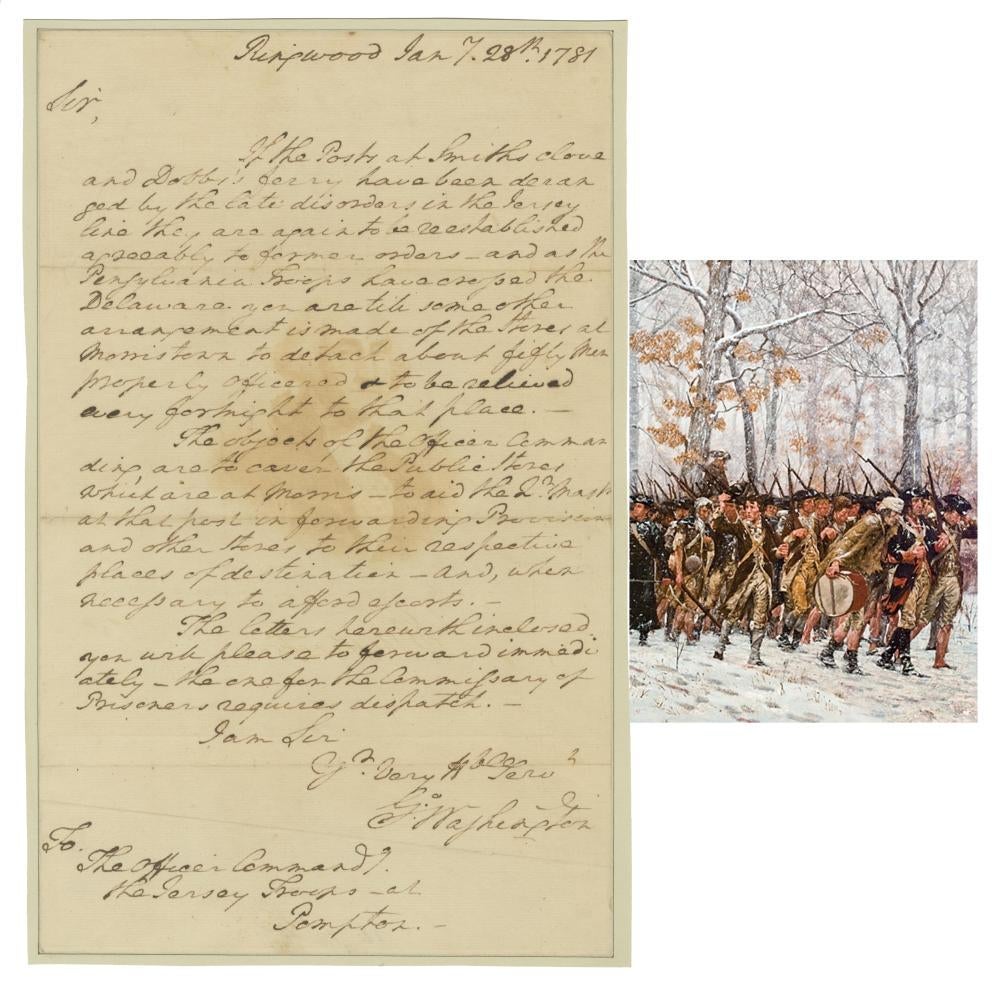 Ringwood Jany. 28th. 1781
Sir,
If the Posts at Smiths clove
and Dobbs's ferry have been deran
ged by the late disorders in the Jersey
line they are again to be reestablished
agreeably to former orders – and as the
Pensylvania Troops have crossed the
Delaware you are till some other
arrangement is made of the Stores at
Morristown to detach about fifty Men
properly officered & to be relieved
every fortnight to that place. –
The objects of the Officer Comman
ding are to cover the Public Stores
which are at Morris – to aid the Qr. Mastr
at that post in forwarding Provision
and other Stores to their respective
places of destination – and, when
necessary to afford escorts. –
The letters herewith inclosed
you will please to forward immedi
ately – the one for the Commissary of
Prisoners requires dispatch. –
I am Sir
Yr. Very Hble Servt
Go: Washington
To.
The Officer Commandg.
the Jersey Troops – at
Pompton. –